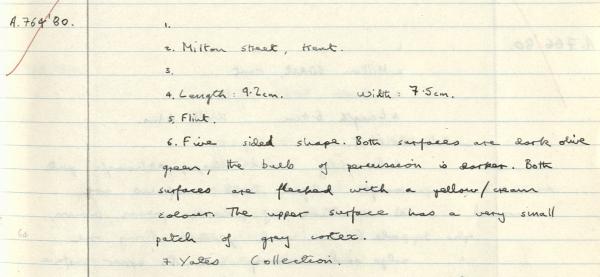 A.764'80.
1.
2. Milton Street, Kent.
3.
4. Length: 9.2cm. Width: 7.5cm.
5. Flint.
6. Five sided shape. Both surfaces are dark olive
green, the bulb of percussion is darker. Both
surfaces are flecked with a yellow/cream
colour. The upper surface has a very small
patch of grey cortex.
7. Yates Collection.